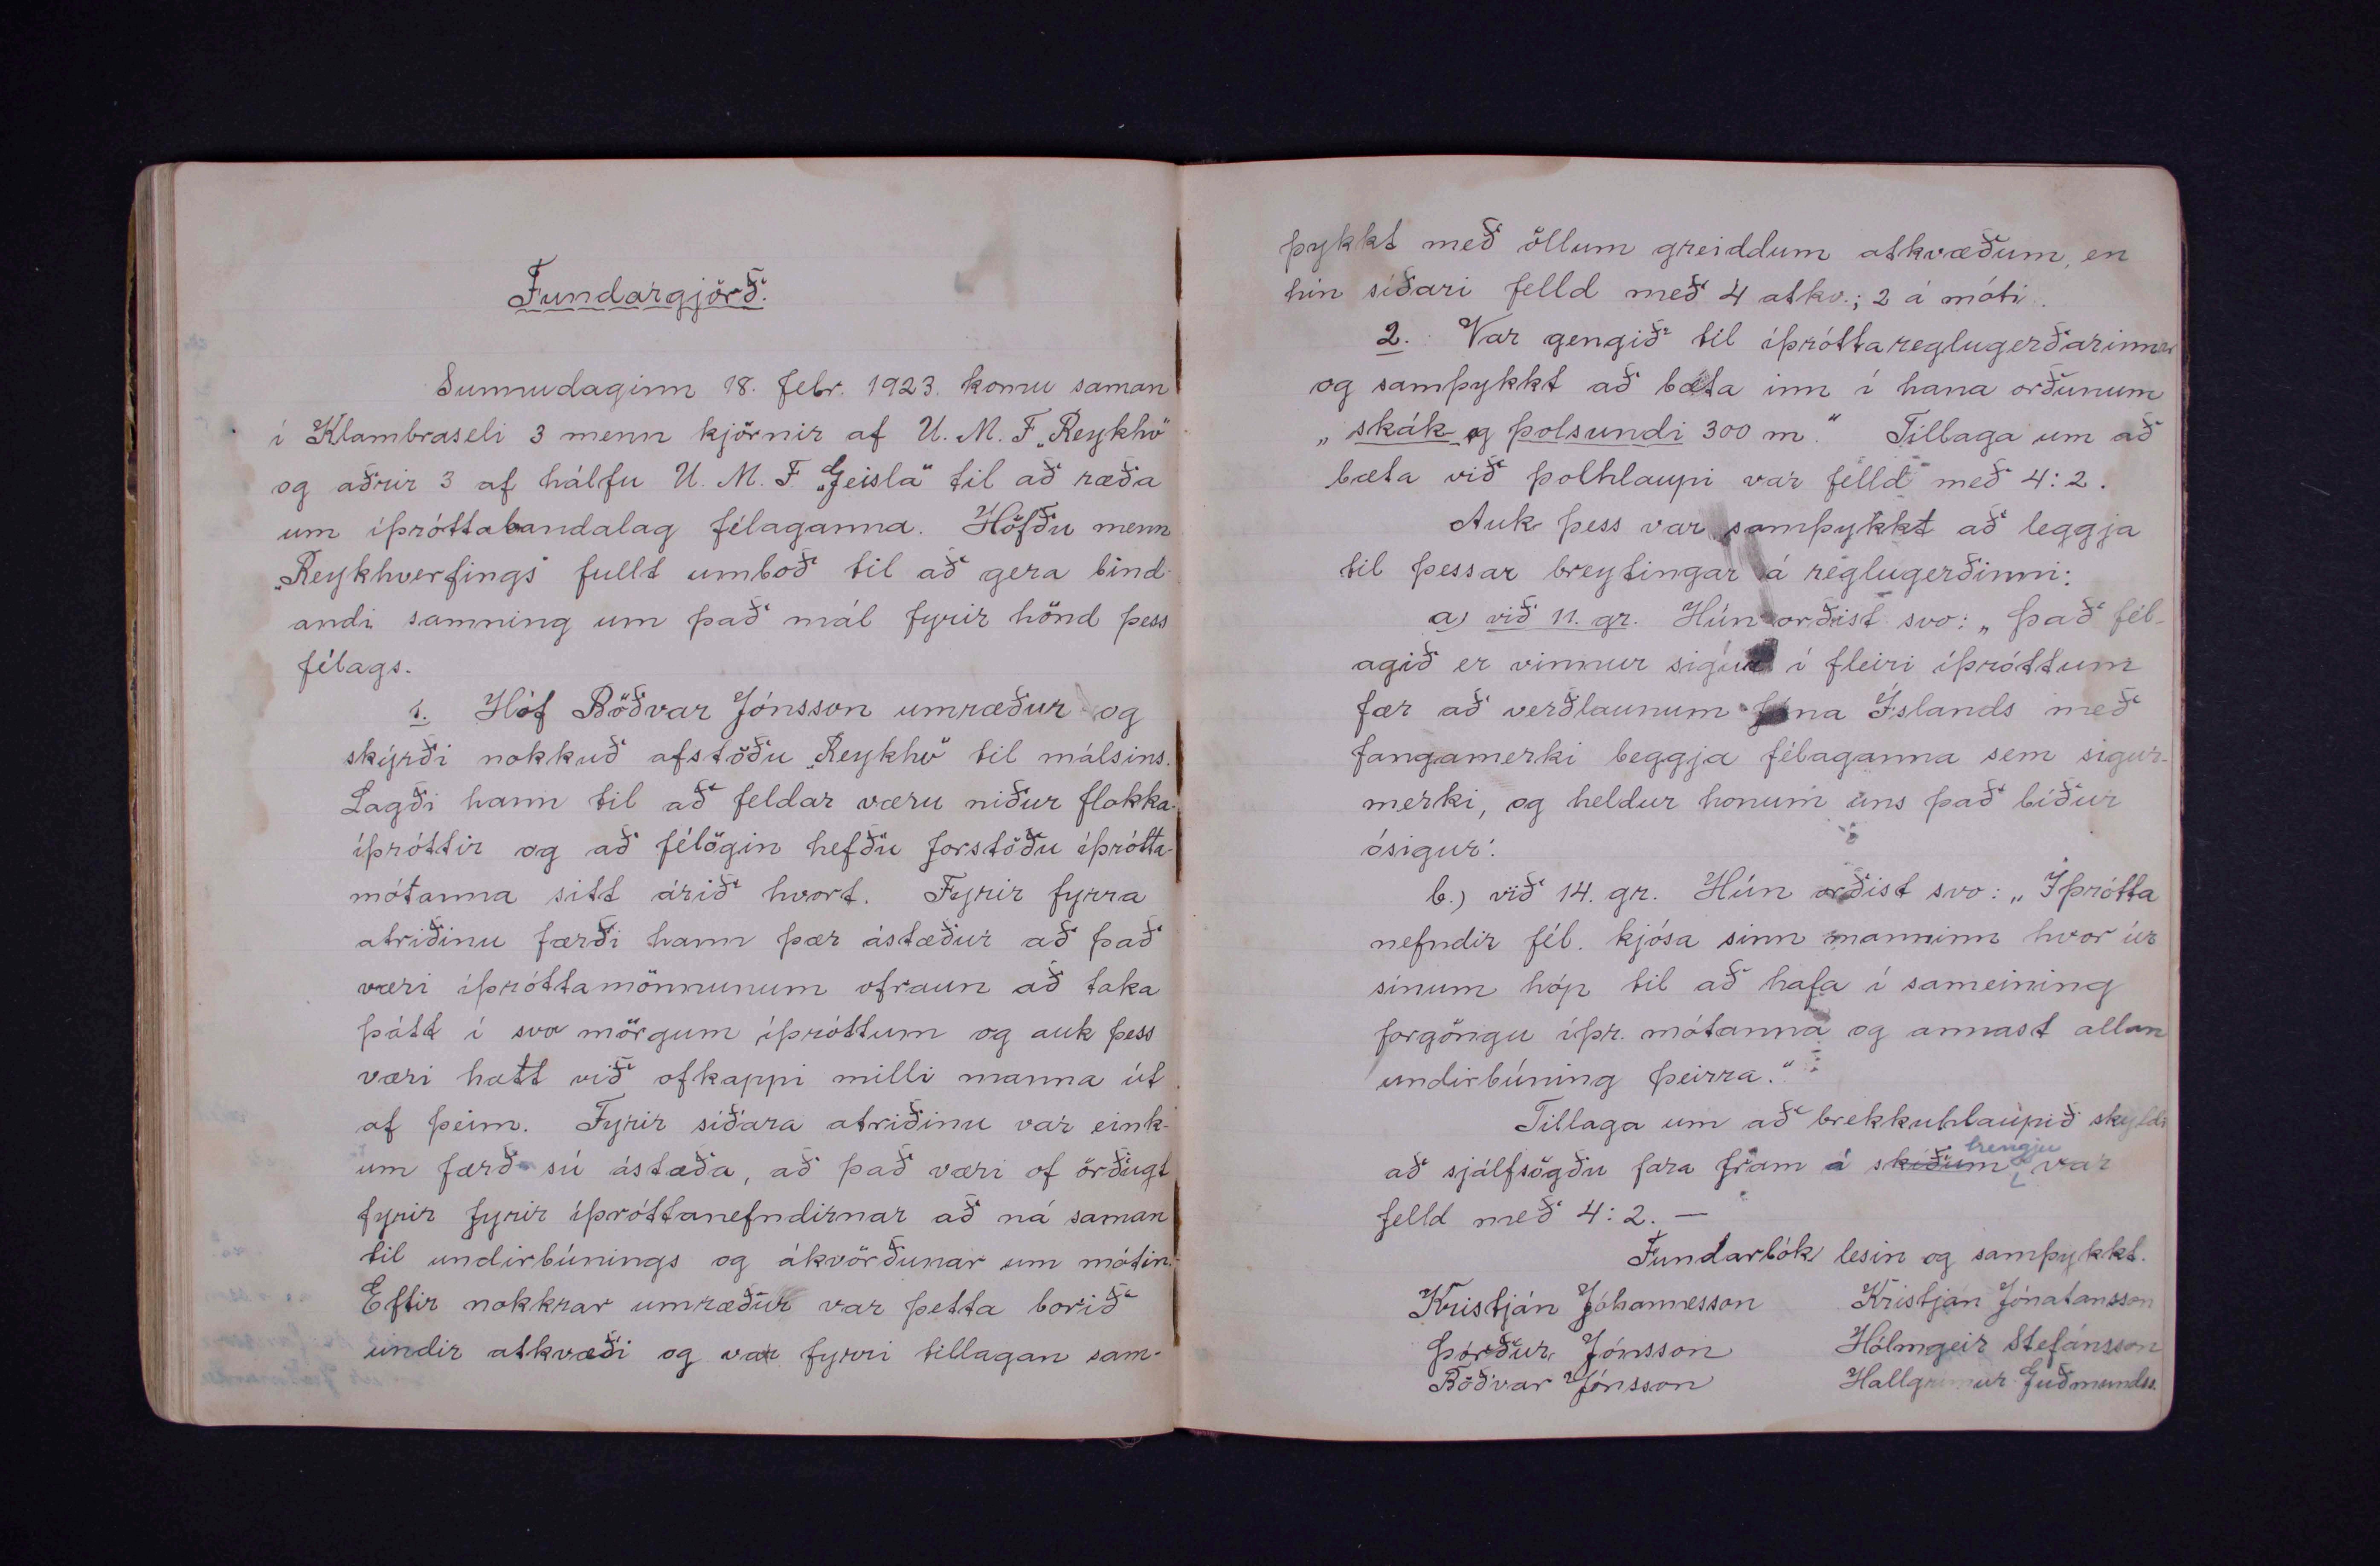 Fundargjörð.
Sunnudaginn 18. febr. 1923. komu saman
í Klambraseli 3 menn kjörnir af U. M. F. „Reykhv"
og aðrir 3 af hálfu U. M. F. „Geisla" til að ræða
um íþróttabandalag félaganna. Höfðu menn
„Reykhverfings" fullt umboð til að gera bind-
andi samning um það mál fyrir hönd þess
félags.
1. Hóf Böðvar Jónsson umræður og
skýrði nokkuð afstöðu „Reykhv" til málsins.
Lagði hann til að feldar væru niður flokka-
íþróttir og að félögin hefðu forstöðu íþrótta-
mótanna sitt árið hvort. Fyrir fyrra
atriðinu færði hann þær ástæður að það
væri íþróttamönnunum ofraun að taka
þátt í svo mörgum íþróttum og auk þess
væri hætt við ofkappi milli manna út
af þeim. Fyrir síðara atriðinu var eink-
um færð sú ástæða, að það væri of örðugt
fyrir fyrir íþróttanefndirnar að ná saman
til undirbúnings og ákvörðunar um mótin.
Eftir nokkrar umræður var þetta borið
undir atkvæði og var fyrri tillagan sam-
þykkt með öllum greiddum atkvæðum, en
hin síðari felld með 4 atkv.; 2 á móti.
2. Var gengið til íþróttareglugerðarinnar
og samþykkt að bæta inn í hana orðunum
„skák og þolsundi 300 m." Tillaga um að
bæta við þolhlaupi var felld með 4:2.
Auk þess var samþykkt að leggja
til þessar breytingar á reglugerðinni:
a) við 11. gr. Hún orðist svo: „Það fél-
agið er vinnur sigur í fleiri íþróttum
fær að verðlaunum fána Íslands með
fangamerki beggja félaganna sem sigur-
merki, og heldur honum uns það bíður
ósigur".
b.) við 14. gr. Hún orðist svo: „Íþrótta
nefndir fél. kjósa sinn manninn hvor úr
sínum hóp til að hafa í sameining
forgöngu íþr. mótanna og annast allan
undirbúning þeirra."
Tillaga um að brekkuhlaupið skyldi
að sjálfsögðu fara fram á skíðum hengju var
felld með 4:2. —
Fundarbók lesin og samþykkt.
Kristján Jóhannesson Kristján Jónatansson
Þórður Jónsson Hólmgeir Stefánsson
Böðvar Jónsson Hallgrímur Guðmundss.